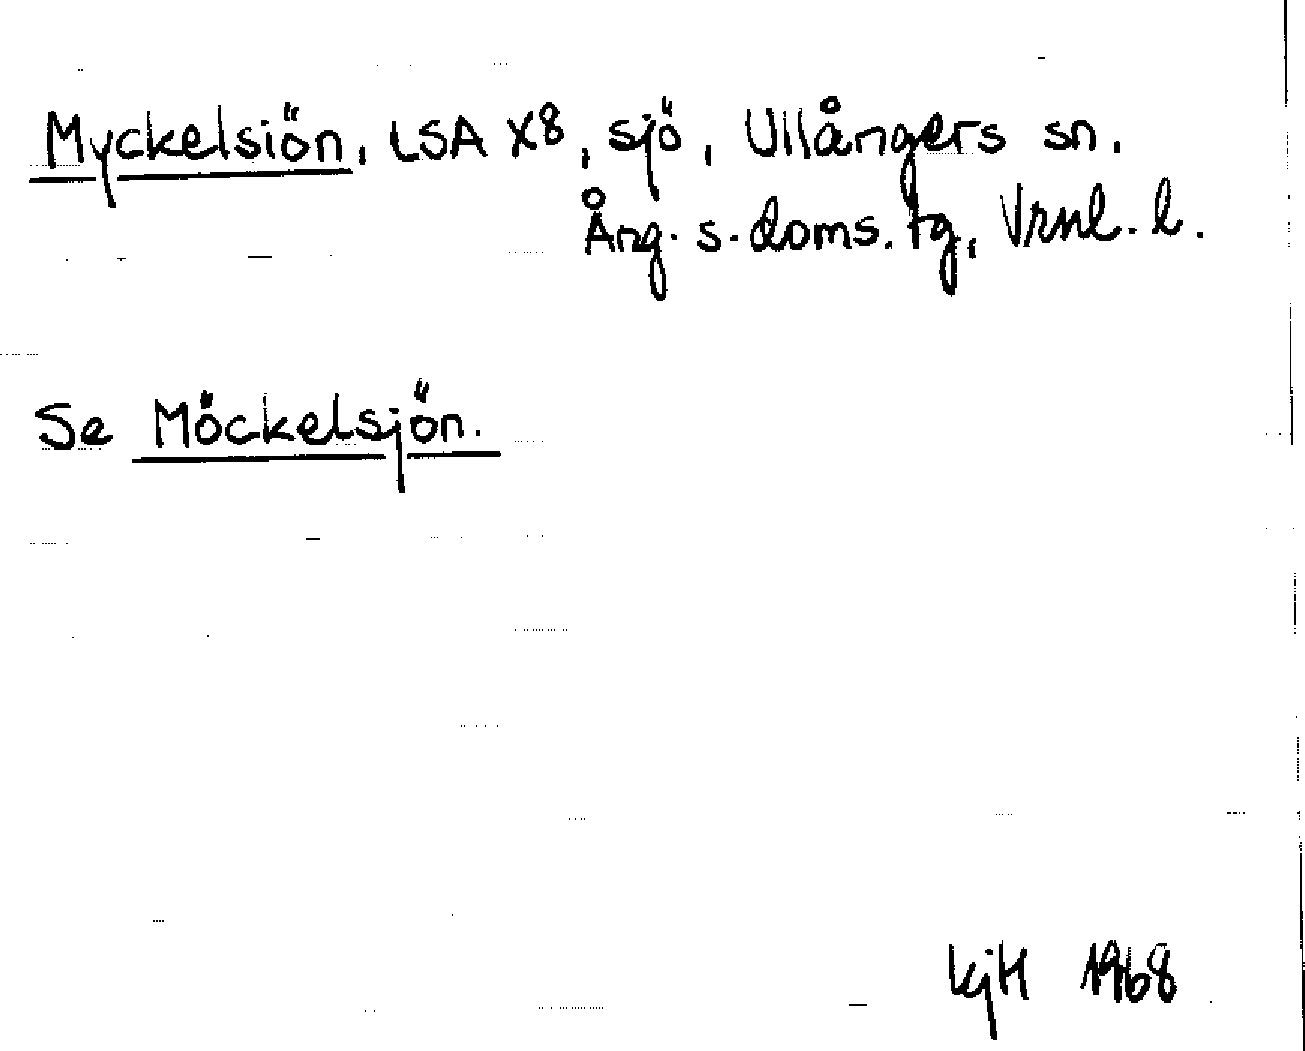 Myckelsiön, LSA X8, sjö, Ullångers sn.
Ång. s. doms. tg, Vrnl. l.
Se Möckelsjön.
KjH 1968